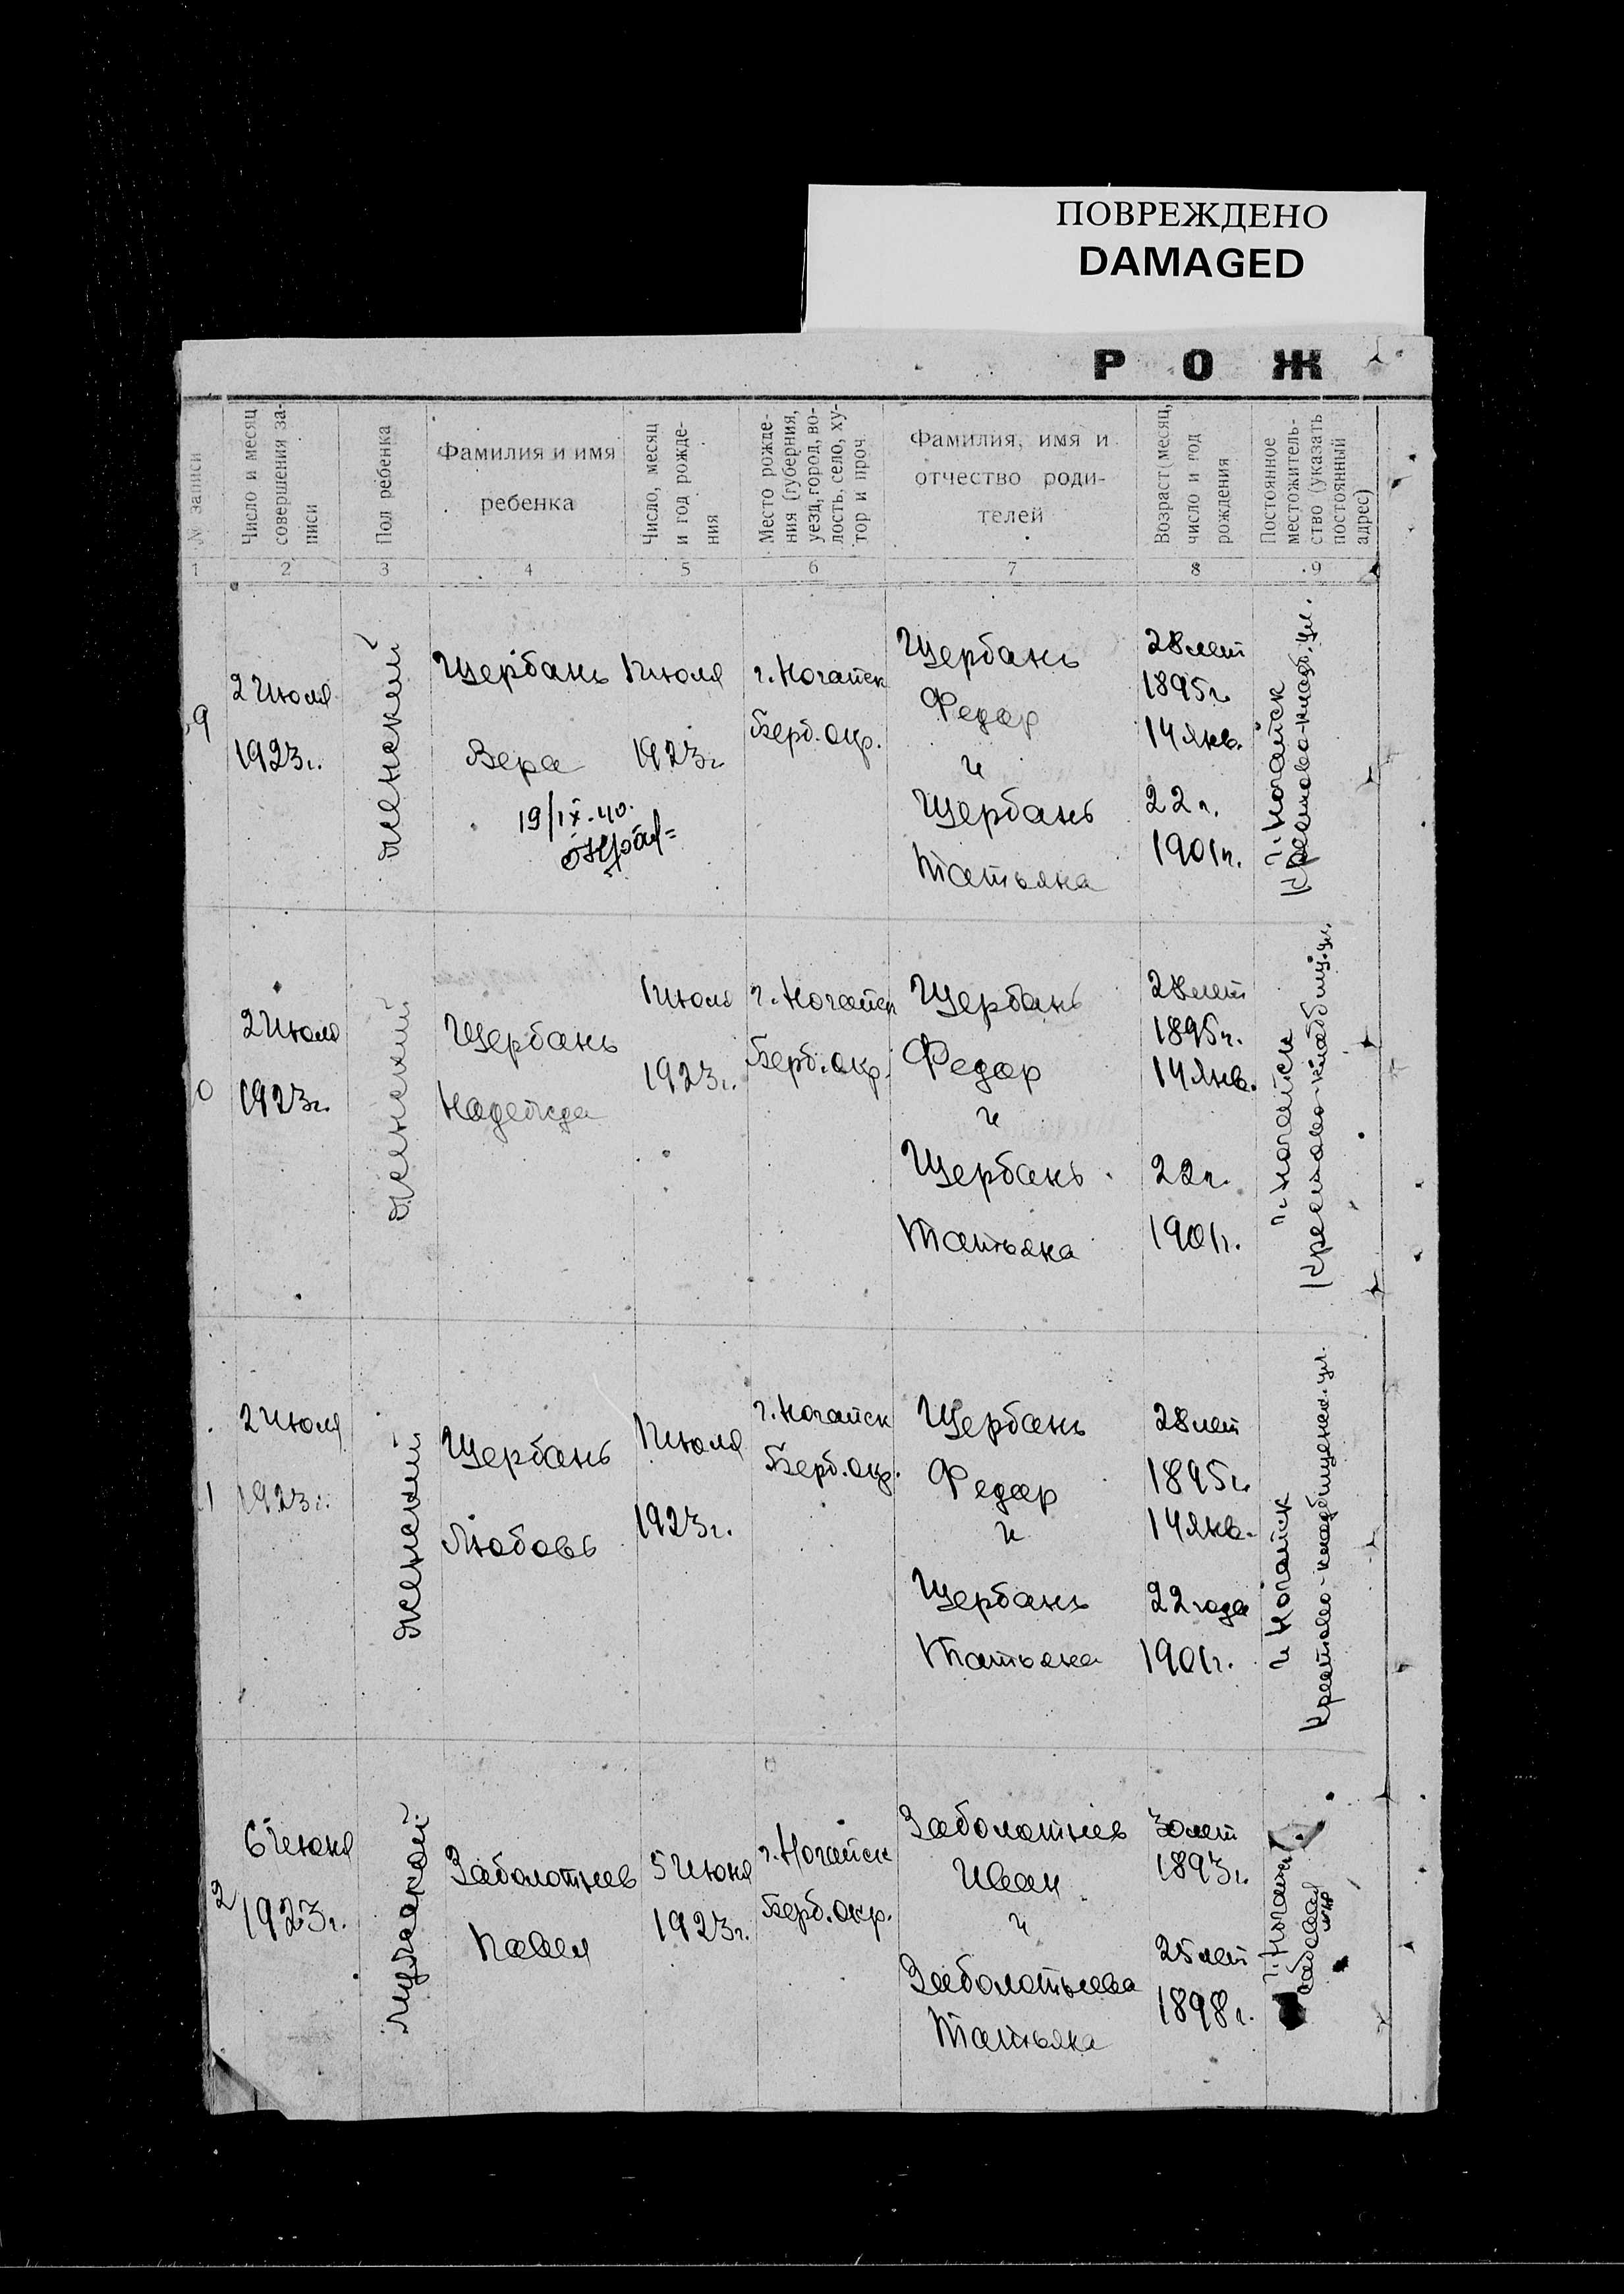 ПОВРЕЖДЕНО
DAMAGED
Р О Ж
№ записи
Число и месяц
совершения за-
писи
Пол ребенка
Фамилия и имя
ребенка
Число, месяц
и год рожде-
ния
Место рожде-
ния (губерния,
уезд, город, во-
лость, село, ху-
тор и проч.
Фамилия, имя и
отчество роди-
телей
Возраст (месяц,
число и год
рождения
Постоянное
местожитель-
ство (указать
постоянный
адрес)
1 2 3 4 5 6 7 8 9
9
2 Июля
1923г.
женский
Щербань
Вера
19/IX-40.
1 июля
1923г.
г. Ногайск
Берд. окр.
Щербань
Федор
и
Щербань
Татьяна
28 лет
1895г.
14 Янв.
22 г.
1901г.
г. Ногайск
ул.
0
2 Июля
1923г.
женский
Щербань
Надежда
1 июля
1923г.
г. Ногайск
Берд. окр.
Щербань
Федор
и
Щербань
Татьяна
28 лет
1895г.
14 Янв.
22 г.
1901г.
г. Ногайск
ул.
1
2 Июля
1923г.
женский
Щербань
Любовь
1 июля
1923г.
г. Ногайск
Берд. окр.
Щербань
Федор
и
Щербань
Татьяна
28 лет
1895г.
14 Янв.
22 года
1901г.
г. Ногайск
ул.
2
6 Июня
1923г.
мужской
Заболотнев
Павел
5 Июня
1923г.
г. Ногайск
Берд. окр.
Заболотнев
Иван
и
Заболотнева
Татьяна
30 лет
1893г.
25 лет
1898г.
г. Ногайск